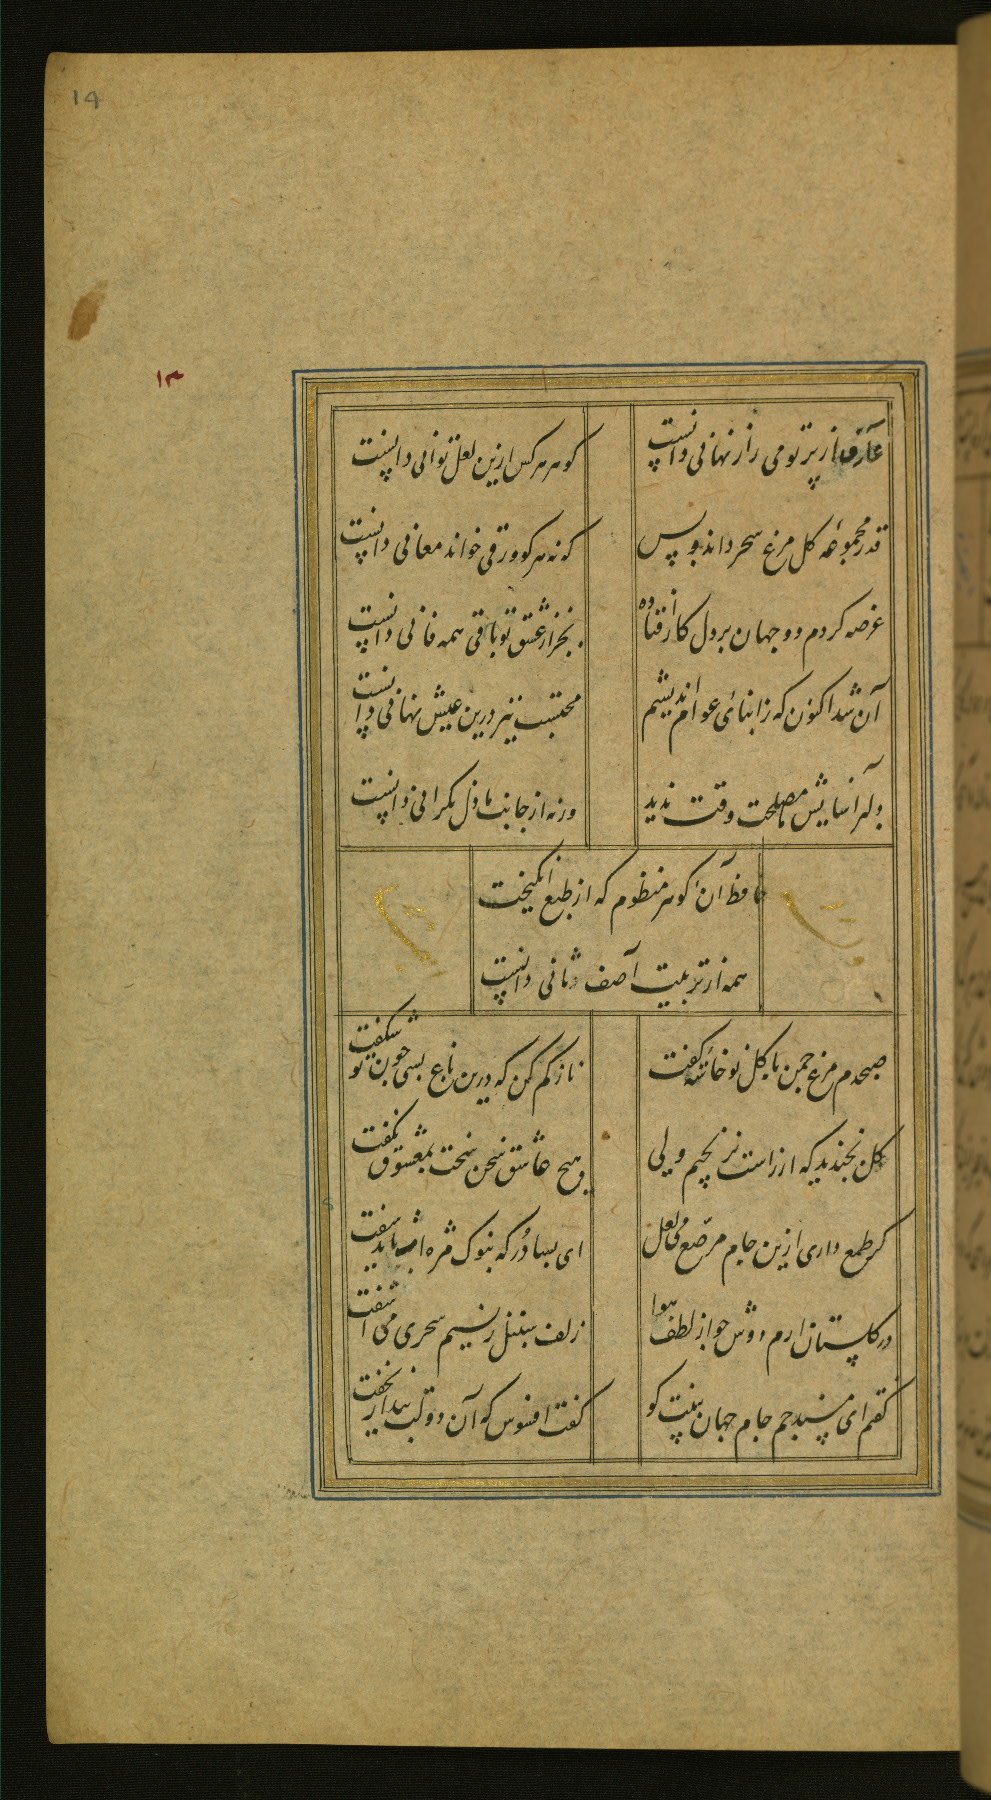 14
۱۳
عارف از پرتو می راز نهانی دانست
کوهر هرکس ازین لعل توانی دانست
قدر مجموعه کل مرغ سحر داند و بس
که نه هرکو ورقی خواند معانی دانست
عرضه کردم دو جهان بر دل کار افتاده
بجز از عشق تو باقی همه فانی دانست
آن شد اکنون که ز ابنای عوام اندیشم
محتسب نیز درین عیش نهانی دانست
دلبر آسایش ما مصلحت وقت ندید
ورنه از جانب ما دل نکرانی دانست
حافظ آن کوهر منظوم که از طبع انکیخت
همه از تربیت آصف ثانی دانست
صبحدم مرغ چمن با کل نوخاسته کفت
ناز کم کن که درین باغ بسی چون تو شکفت
کل بخندید که از راست نرنجیم ولی
هیچ عاشق سخن سخت بمعشوق نکفت
کر طمع داری ازین جام مرصع می لعل
ای بسا در که بنوک مژه ات باید سفت
در کلستان ارم دوش چو از لطف هوا
زلف سنبل ز نسیم سحری می آشفت
کفتم ای مسند جم جام جهان بینت کو
کفت افسوس که آن دولت بیدار بخفت